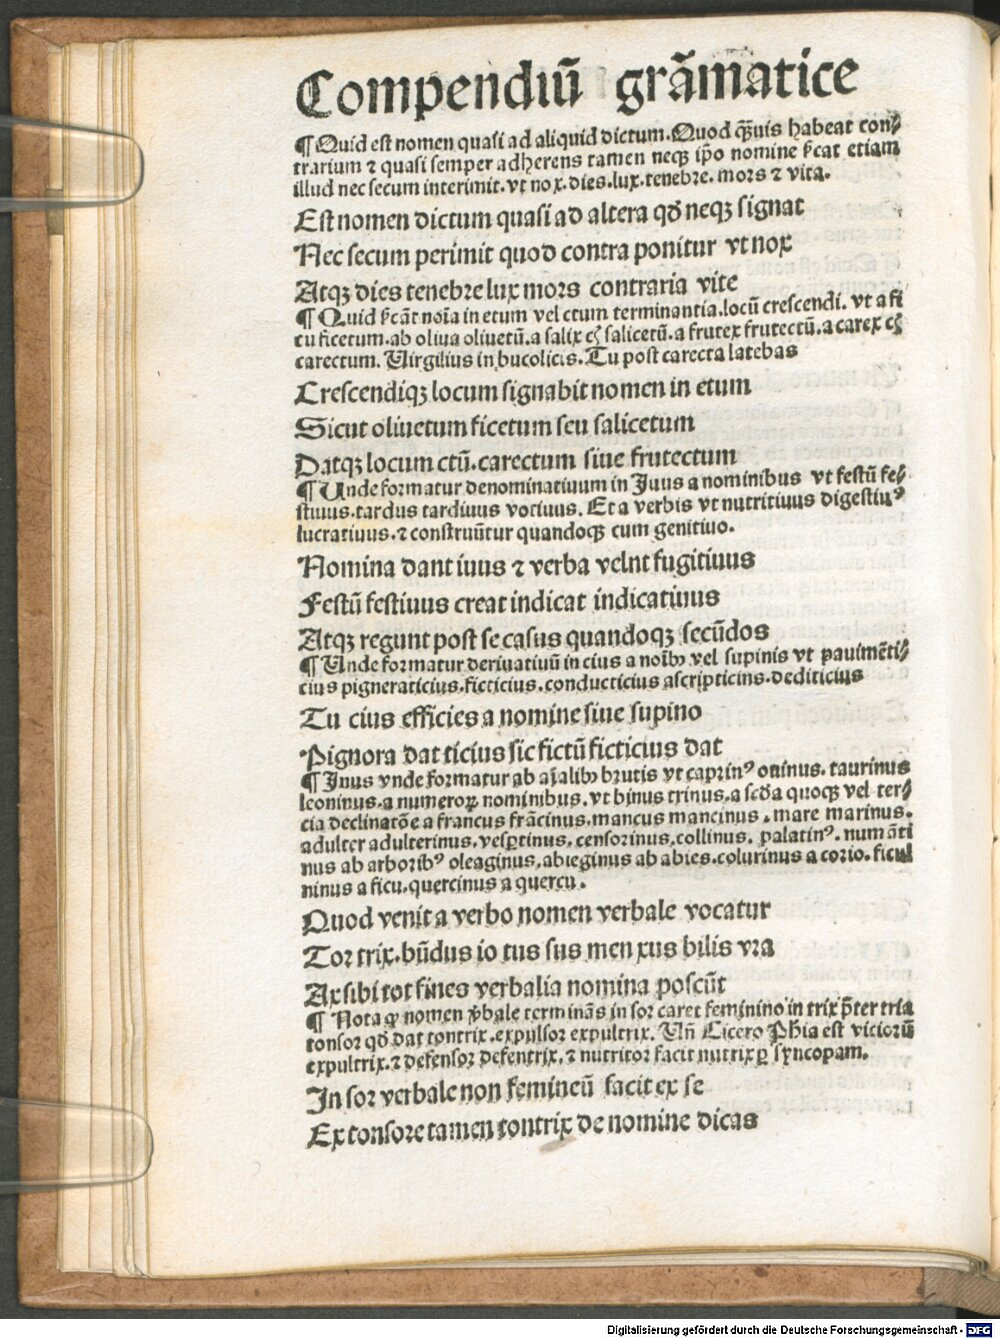 Compendiū grāmatice
¶ Quid est nomen quasi ad aliquid dictum. Quod q̄uis habeat con⸗
trarium ⁊ quasi semper adherens tamen neqꝫ ip̄o nomine ſ̄cat etiam
illud nec secum interimit. vt nox. dies. lux. tenebre. mors ⁊ vita.
Est nomen dictum quasi ad altera qđ neqꝫ signat
Nec secum perimit quod contra ponitur vt nox
Atqꝫ dies tenebre lux mors contraria vite
¶ Quid ſ̄cāt noīa in etum vel ctum terminantia. locū crescendi. vt a fi
cu ficetum. ab oliua oliuetū. a salix salicetū. a frutex frutectū. a carex
carectum. Uirgilius in bucolicis. Tu post carecta latebas
Crescendiqꝫ locum signabit nomen in etum
Sicut oliuetum ficetum seu salicetum
Datqꝫ locum ctū. carectum siue frutectum
¶ Unde formatur denominatiuum in Juus a nominibus vt festū fe⸗
stiuus. tardus tardiuus votiuus. Et a verbis vt nutritiuus digestiuꝰ
lucratiuus. ⁊ construūtur quandoqꝫ cum genitiuo.
Nomina dant iuus ⁊ verba velut fugitiuus
Festū festiuus creat indicat indicatiuus
Atqꝫ regunt post se casus quandoqꝫ secūdos
¶ Unde formatur deriuatiuū in cius a noībꝫ vel supinis vt pauimēti⸗
cius pigneraticius. ficticius. conducticius ascripticius. dediticius
Tu cius efficies a nomine siue supino
Pignora dat ticius sic fictū ficticius dat
¶ Jnus vnde formatur ab aīalibꝫ brutis vt caprinꝰ ouinus. taurinus
leoninus. a numeroꝝ nominibus. vt binus trinus. a scđa quoqꝫ vel ter⸗
cia declinatōe a francus frācinus. mancus mancinus. mare marinus.
adulter adulterinus. vesꝑtinus. censorinus. collinus. palatinꝰ. numāti
nus ab arboribꝰ oleaginus. abieginus ab abies. colurinus a corio. ficul
ninus a ficu. quercinus a quercu.
Quod venit a verbo nomen verbale vocatur
Tor trix. būdus io tus sus men xus bilis vra
Ax sibi tot fines verbalia nomina poscūt
¶ Nota ꝙ nomen v̄bale terminās in sor caret feminino in trix p̄ter tria
tonsor qđ dat tontrix. expulsor expultrix. Uñ Cicero Phīa est vicioruū
expultrix. ⁊ defensor defentrix. ⁊ nutritor facit nutrix ꝑ syncopam.
In sor verbale non femineū facit ex se
Ex tonsore tamen tontrix de nomine dicas
Digitalisierung gefördert durch die Deutsche Forschungsgemeinschaft - DFG